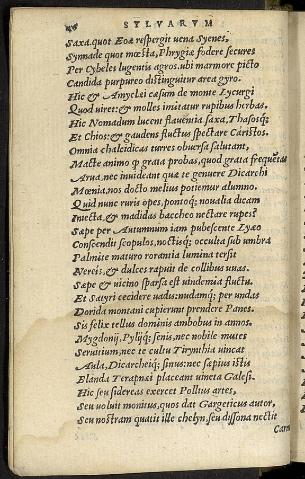 SYLVARVM
Saxa. quot Eoæ respergit uena Syenes,
Synnade quot mœsta, Phrygiæ fodere secures
Per Cybeles lugentis agros. ubi marmore picto
Candida purpureo distinguitur area gyro.
Hic & Amyclei cæsum de monte Lycurgi
Quod uiret: & molles imitatur rupibus herbas.
Hic Nomadum lucent flauentia saxa, Thasosq;
Et Chios: & gaudens fluctus spectare Caristos.
Omnia chalcidicas turres obuersa salutant,
Macte animo q̃ grata probas, quod grata frequentas
Arua. nec inuideant quæ te genuere Dicarchi
Mœnia, nos docto melius potiemur alumno.
Quid nunc ruris opes, pontoq; noualia dicam
Iniecta, & madidas baccheo nectare rupes?
Sæpe per Autumnum iam pubescente Lyæo
Conscendit scopulos, noctisq; occulta sub umbra
Palmite maturo rorantia lumina tersit
Nereis, & dulces rapuit de collibus uuas.
Sæpe & uicino sparsa est uindemia fluctu.
Et Satyri cecidere uadis: nudamq; per undas
Dorida montani cupierunt prendere Panes.
Sis felix tellus dominis ambobus in annos.
Mygdonij, Pylijq; senis, nec nobile mutes
Seruitium, nec te cultu Tirynthia uincat
Aula, Dicarcheiq; sinus: nec sæpius istis
Blanda Terapnæi placeant uineta Galesi.
Hic seu sidereas exercet Pollius artes,
Seu uoluit monitus, quos dat Gargeticus autor,
Seu nostram quatit ille chelyn, seu dissona nectit
Carm